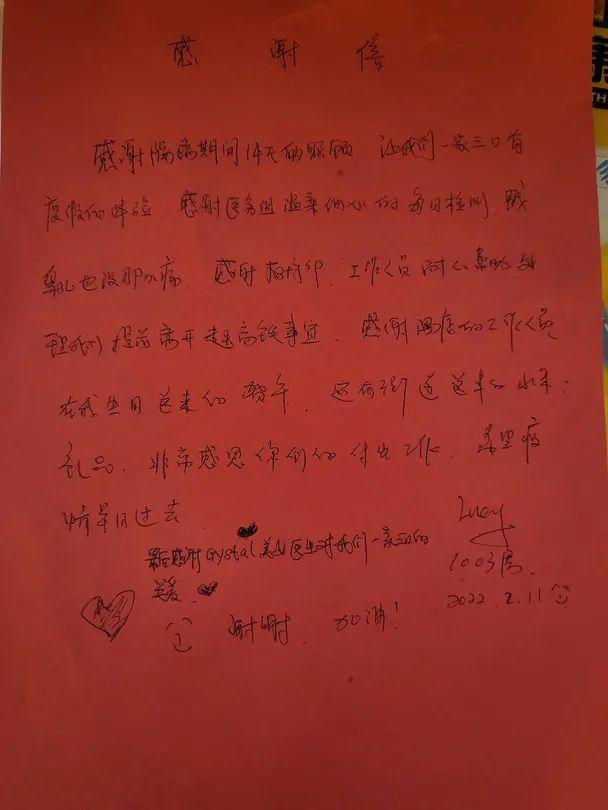 感谢信
感谢隔离期间14天的照顾，让我们一家三口有
度假的体验，感谢医务组温柔细心的每日检测，戳
鼻孔也没那么痛，感谢指挥部，工作人员耐心帮助处
理我们提前离开赶高铁事宜，感谢酒店的工作人员
在我生日送来的贺卡，还有街道送来的水果、
礼品，非常感恩你们的付出工作，希望疫
情早日过去
最后感谢Crystal 医生对我们一家三口的
关爱
谢谢，加油！
Lucy
1003房
2022.2.11